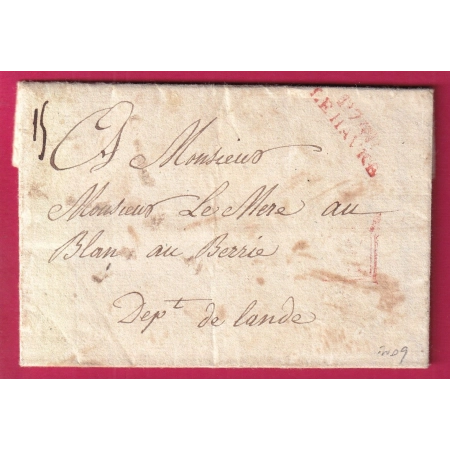 15
P.76.P
LE HAVRE
A Monsieur
Monsieur Le Mere au
Blan au Berrie
Dep.t de lande